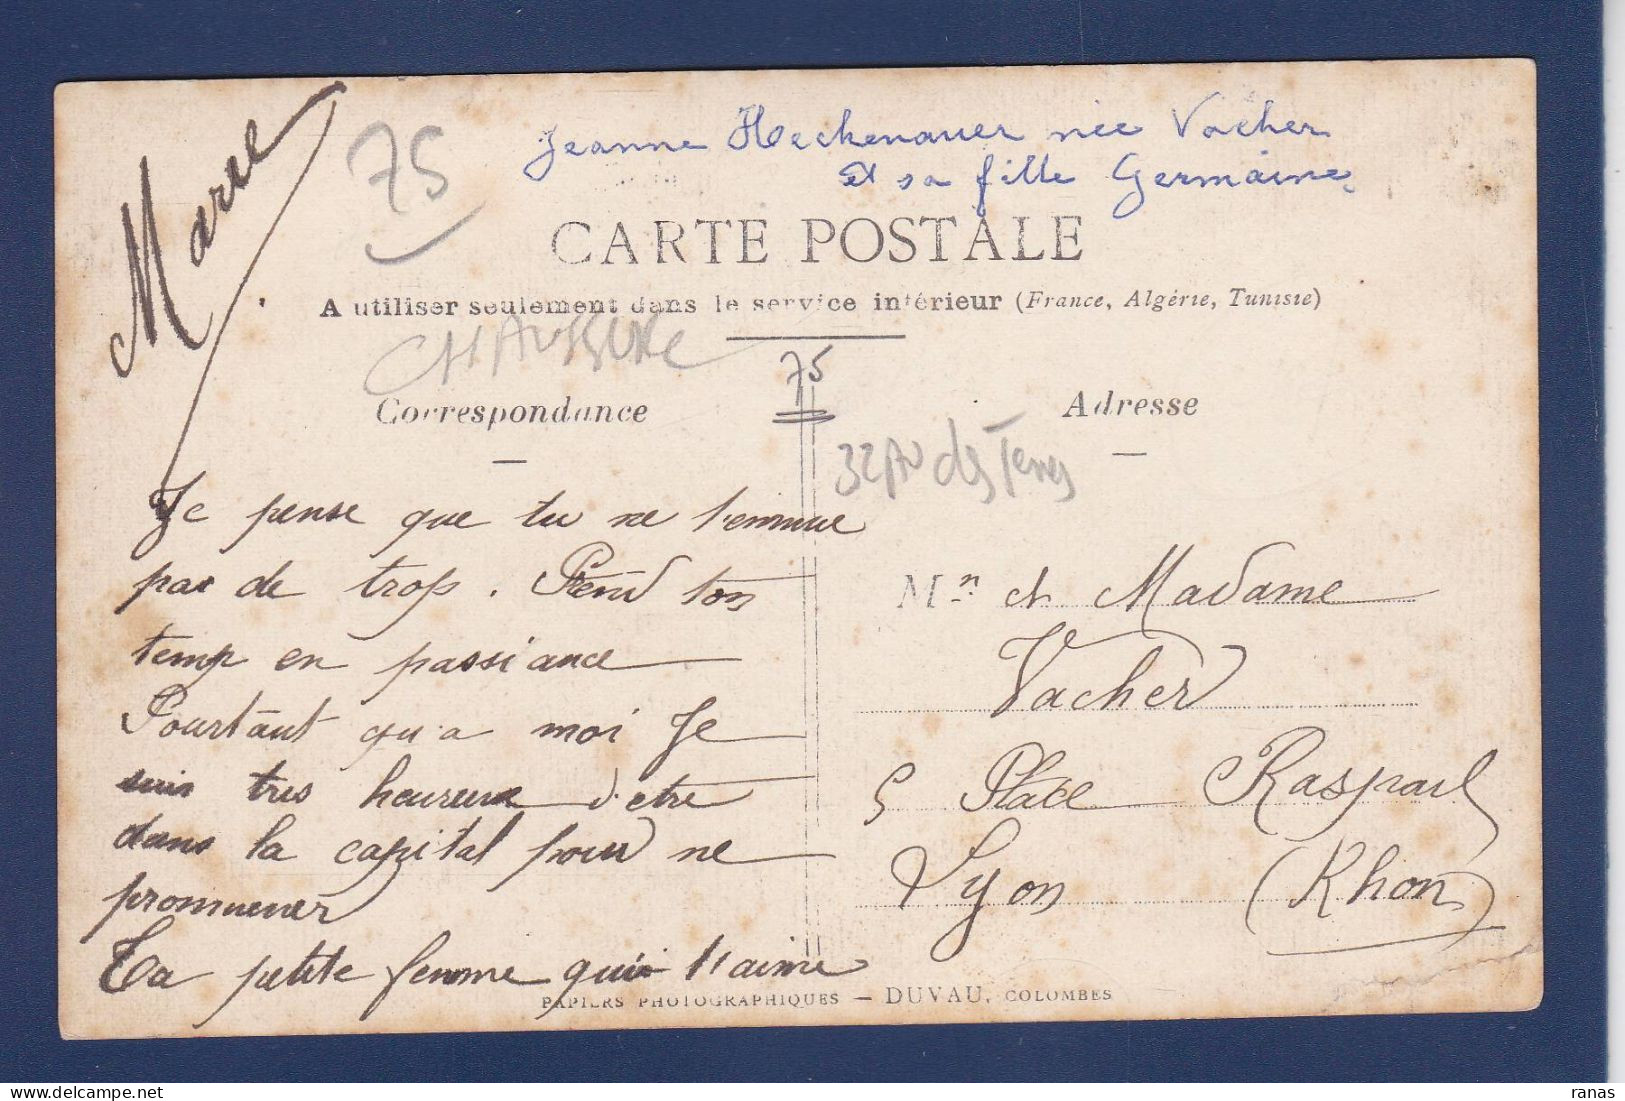 Marie
75
Jeanne Heckenauer née Vacher
et sa fille Germaine
CARTE POSTALE
A utiliser seulement dans le service intérieur (France, Algérie, Tunisie)
CHAUSSURE
75
Correspondance
Adresse
32 Av des Ternes
Je pense que tu ne t'ennuue
pas de trop. Prend ton
temp en passiance
Pourtant qu'a moi Je
suis tres heureuse d'etre
dans la capital pour me
promuener
Ta petite femme qui t'aime
Mr et Madame
Vacher
5 Place Raspail
Lyon (Rhon)
PAPIERS PHOTOGRAPHIQUES — DUVAU, COLOMBES
ranas